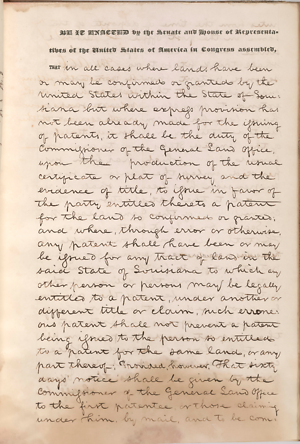 BE IT ENACTED by the Senate and House of Representa-
tives of the United States of America in Congress assembled,
THAT in all cases where lands have been
or may be confirmed or granted by the
United States within the State of Loui-
siana but where express provision has
not been already made for the issuing
of patents, it shall be the duty of the
Commissioner of the General Land Office,
upon the production of the usual
certificate or plat of survey and the
evidence of title, to issue in favor of
the party entitled thereto a patent
for the land so confirmed or granted,
and where, through error or otherwise,
any patent shall have been or may
be issued for any tract of land in the
said State of Louisiana to which any
other person or persons may be legally
entitled to a patent, under another or
different title or claim, such errone-
ous patent shall not prevent a patent
being issued to the person so entitled
to a patent for the same land, or any
part thereof; Provided, however, That sixty
days' notice shall be given by the
Commissioner of the General Land Office
to the first patentee or those claiming
under him by mail, and to be com